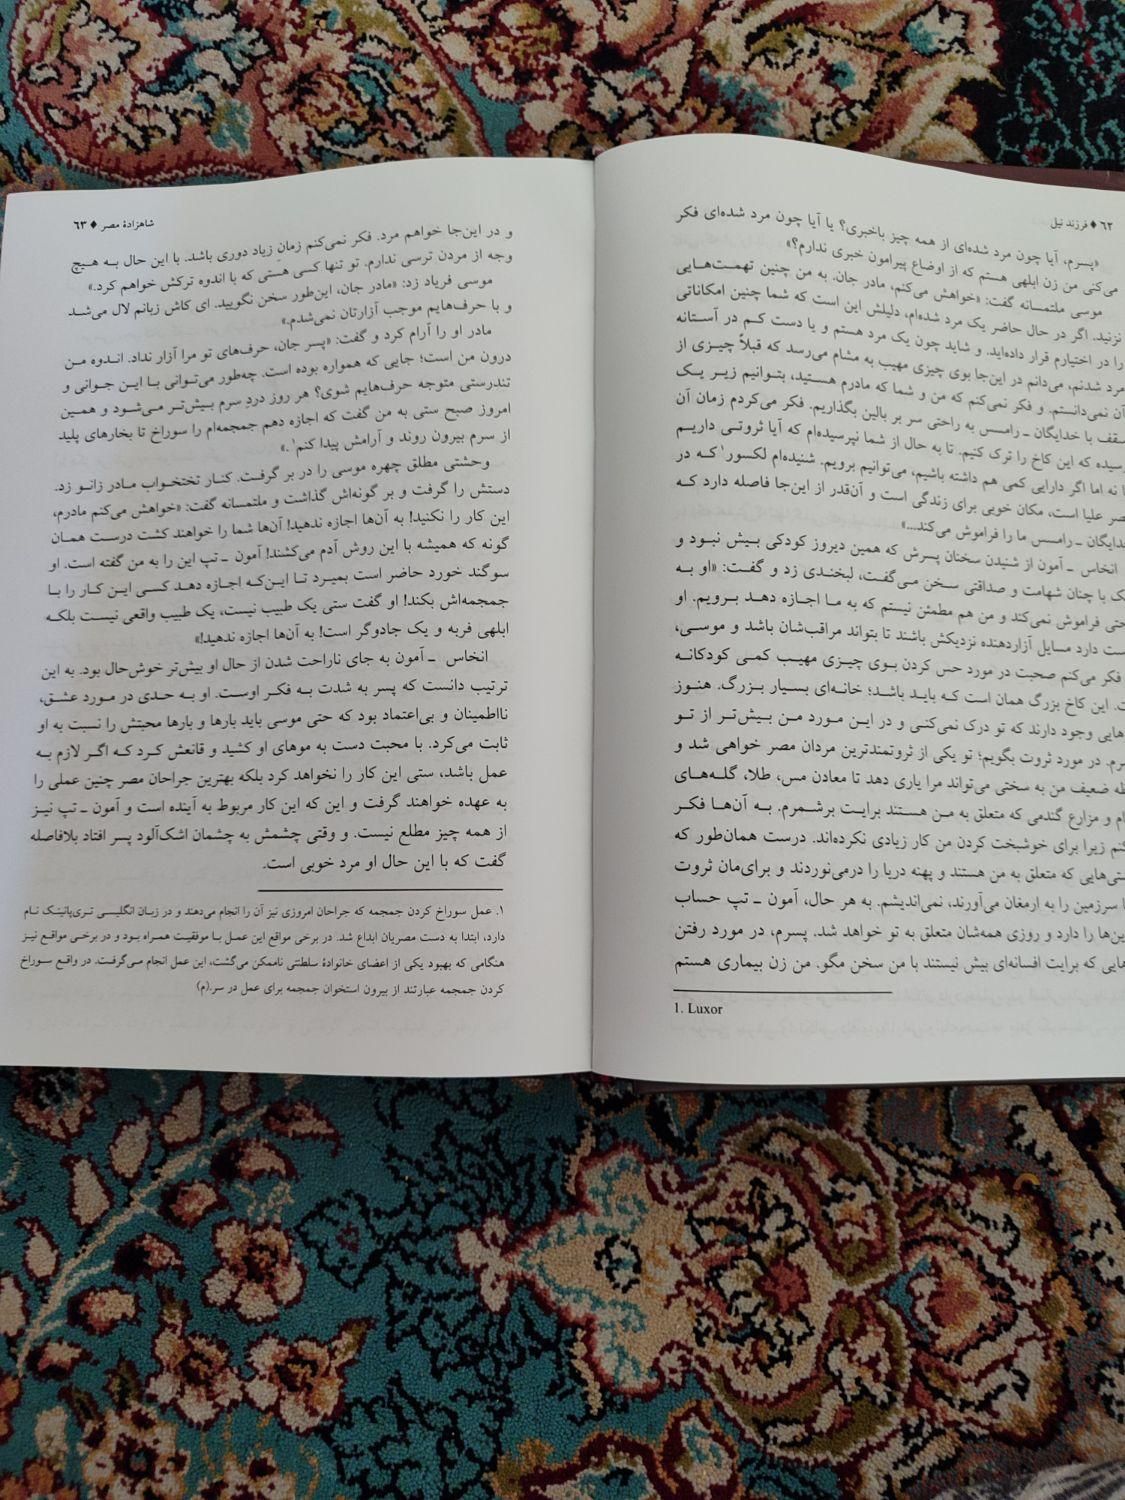 ۶۲ ♦ فرزند نیل
«پسرم، آیا چون مرد شده‌ای از همه چیز باخبری؟ یا آیا چون مرد شده‌ای فکر
می‌کنی من زن ابلهی هستم که از اوضاع پیرامون خبری ندارم؟»
موسی ملتمسانه گفت: «خواهش می‌کنم، مادر جان. به من چنین تهمت‌هایی
نزنید. اگر در حال حاضر یک مرد شده‌ام، دلیلش این است که شما چنین امکاناتی
را در اختیارم قرار داده‌اید. و شاید چون یک مرد هستم و یا دست کم در آستانه
مرد شدنم، می‌دانم در این‌جا بوی چیزی مهیب به مشام می‌رسد که قبلاً چیزی از
آن نمی‌دانستم. و فکر نمی‌کنم که من و شما که مادرم هستید، بتوانیم زیر یک
سقف با خدایگان ـ رامسس به راحتی سر بر بالین بگذاریم. فکر می‌کردم زمان آن
رسیده که این کاخ را ترک کنیم. تا به حال از شما نپرسیده‌ام که آیا ثروتی داریم
یا نه اما اگر دارایی کمی هم داشته باشیم، می‌توانیم برویم. شنیده‌ام لکسور۱ که در
مصر علیا است، مکان خوبی برای زندگی است و آن‌قدر از این‌جا فاصله دارد که
خدایگان ـ رامسس ما را فراموش می‌کند...»
انخاس ـ آمون از شنیدن سخنان پسرش که همین دیروز کودکی بیش نبود و
با چنان شهامت و صداقتی سخن می‌گفت، لبخندی زد و گفت: «او به
فراموش نمی‌کند و من هم مطمئن نیستم که به ما اجازه دهد برویم. او
دارد مسایل آزاردهنده نزدیکش باشند تا بتواند مراقب‌شان باشد و موسی،
فکر می‌کنم صحبت در مورد حس کردن بوی چیزی مهیب کمی کودکانه
این کاخ بزرگ همان است که باید باشد؛ خانه‌ای بسیار بزرگ. هنوز
وجود دارند که تو درک نمی‌کنی و در این مورد من بیش‌تر از تو
در مورد ثروت بگویم؛ تو یکی از ثروتمندترین مردان مصر خواهی شد و
ضعیف من به سختی می‌تواند مرا یاری دهد تا معادن مس، طلا، گله‌های
و مزارع گندمی که متعلق به من هستند برایت برشمرم. به آن‌ها فکر
زیرا برای خوشبخت کردن من کار زیادی نکرده‌اند. درست همان‌طور که
که متعلق به من هستند و پهنه دریا را درمی‌نوردند و برای‌مان ثروت
سرزمین را به ارمغان می‌آورند، نمی‌اندیشم. به هر حال، آمون ـ تپ حساب
را دارد و روزی همه‌شان متعلق به تو خواهد شد. پسرم، در مورد رفتن
که برایت افسانه‌ای بیش نیستند با من سخن مگو. من زن بیماری هستم
1. Luxor
شاهزادهٔ مصر ♦ ۶۳
و در این‌جا خواهم مرد. فکر نمی‌کنم زمان زیاد دوری باشد. با این حال به هیچ
وجه از مردن ترسی ندارم. تو تنها کسی هستی که با اندوه ترکش خواهم کرد.»
موسی فریاد زد: «مادر جان، این‌طور سخن نگویید. ای کاش زبانم لال می‌شد
و با حرف‌هایم موجب آزارتان نمی‌شدم.»
مادر او را آرام کرد و گفت: «پسر جان، حرف‌های تو مرا آزار نداد. اندوه من
درون من است؛ جایی که همواره بوده است. چه‌طور می‌توانی با این جوانی و
تندرستی متوجه حرف‌هایم شوی؟ هر روز دردِ سرم بیش‌تر می‌شود و همین
امروز صبح ستی به من گفت که اجازه دهم جمجمه‌ام را سوراخ تا بخارهای پلید
از سرم بیرون روند و آرامش پیدا کنم۱.»
وحشتی مطلق چهره موسی را در بر گرفت. کنار تختخواب مادر زانو زد.
دستش را گرفت و بر گونه‌اش گذاشت و ملتمسانه گفت: «خواهش می‌کنم مادرم،
این کار را نکنید! به آن‌ها اجازه ندهید! آن‌ها شما را خواهند کشت درست همان
گونه که همیشه با این روش آدم می‌کشند! آمون ـ تپ این را به من گفته است. او
سوگند خورد حاضر است بمیرد تا این‌که اجازه دهد کسی این کار را با
جمجمه‌اش بکند! او گفت ستی یک طبیب نیست، یک طبیب واقعی نیست بلکه
ابلهی فربه و یک جادوگر است! به آن‌ها اجازه ندهید!»
انخاس ـ آمون به جای ناراحت شدن از حال او بیش‌تر خوش‌حال بود. به این
ترتیب دانست که پسر به شدت به فکر اوست. او به حدی در مورد عشق،
نااطمینان و بی‌اعتماد بود که حتی موسی باید بارها و بارها محبتش را نسبت به او
ثابت می‌کرد. با محبت دست به موهای او کشید و قانعش کرد که اگر لازم به
عمل باشد، ستی این کار را نخواهد کرد بلکه بهترین جراحان مصر چنین عملی را
به عهده خواهند گرفت و این که این کار مربوط به آینده است و آمون ـ تپ نیز
از همه چیز مطلع نیست. و وقتی چشمش به چشمان اشک‌آلود پسر افتاد بلافاصله
گفت که با این حال او مرد خوبی است.
۱. عمل سوراخ کردن جمجمه که جراحان امروزی نیز آن را انجام می‌دهند و در زبان انگلیسی تری‌پانینگ نام
دارد، ابتدا به دست مصریان ابداع شد. در برخی مواقع این عمل با موفقیت همراه بود و در برخی مواقع نیز
هنگامی که بهبود یکی از اعضای خانوادهٔ سلطنتی ناممکن می‌گشت، این عمل انجام می‌گرفت. در واقع سوراخ
کردن جمجمه عبارتند از بیرون استخوان جمجمه برای عمل در سر.(م)